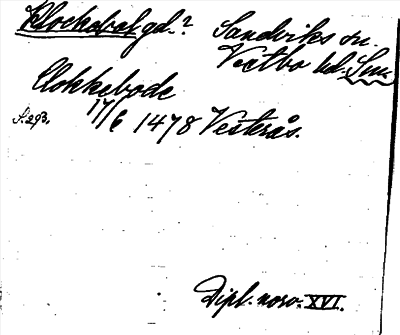 Klockebol gd.? Sandviks sn.
Vestbo hd. Sm.
Clokkebode
S. 293. 17/6 1478 Vesterås.
Dipl. norv. XVI.